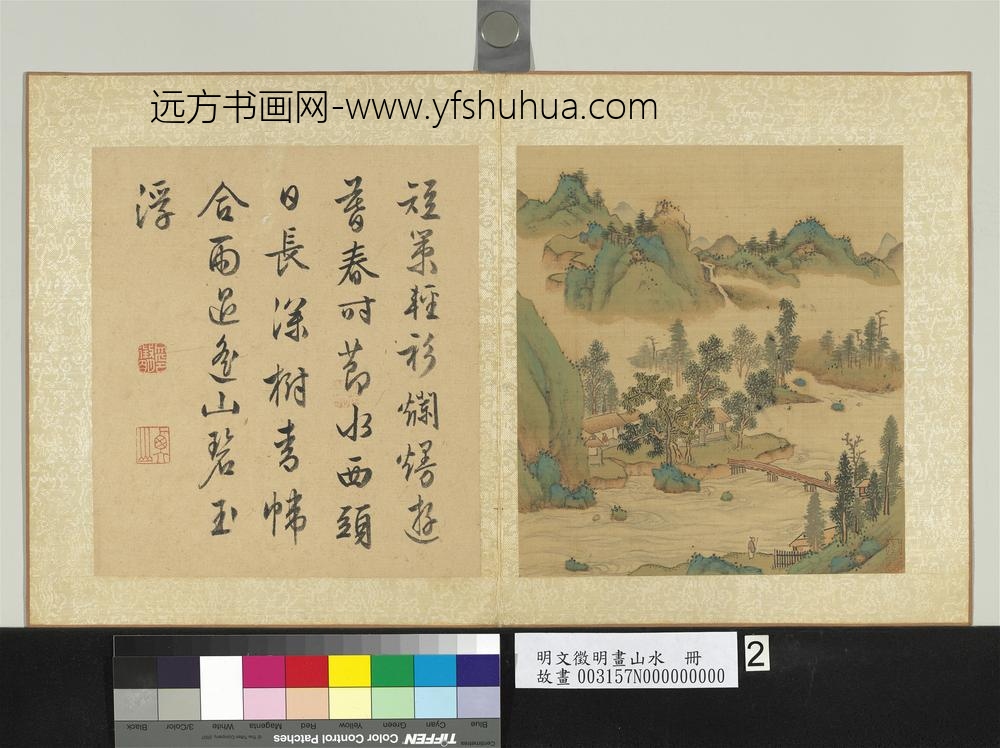 远方书画网-www.yfshuhua.com
短策輕衫爛熳遊
暮春时節水西頭
日長深樹青幃
合雨過遙山碧玉
浮
明文徵明畫山水 冊
故畫003157N000000000
2
Blue Cyan Green Yellow Red Magenta White 3/Color Black
TIFFEN Color Control Patches
© The Tiffen Company, 2007
Centimetres